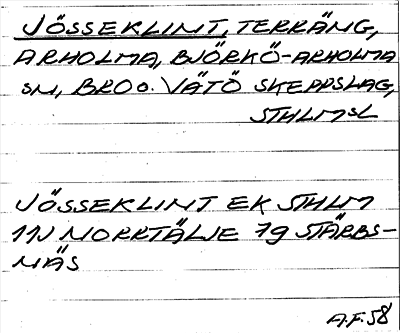 JÖSSEKLINT, TERRÄNG,
ARHOLMA, BJÖRKÖ-ARHOLMA
SN, BRO O. VÄTÖ SKEPPSLAG,
STHLMSL
JÖSSEKLINT EK STHLM
11J NORRTÄLJE 7g STÄRBS-
NÄS
A.F. 58